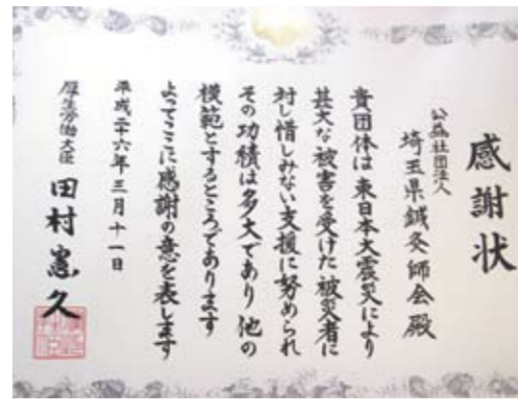 感謝状
公益社団法人
埼玉県鍼灸師会殿
貴団体は東日本大震災により
甚大な被害を受けた被災者に
対し惜しみない支援に努められ
その功績は多大であり他の
模範とするところであります
よってここに感謝の意を表します
平成二十六年三月十一日
厚生労働大臣 田村憲久